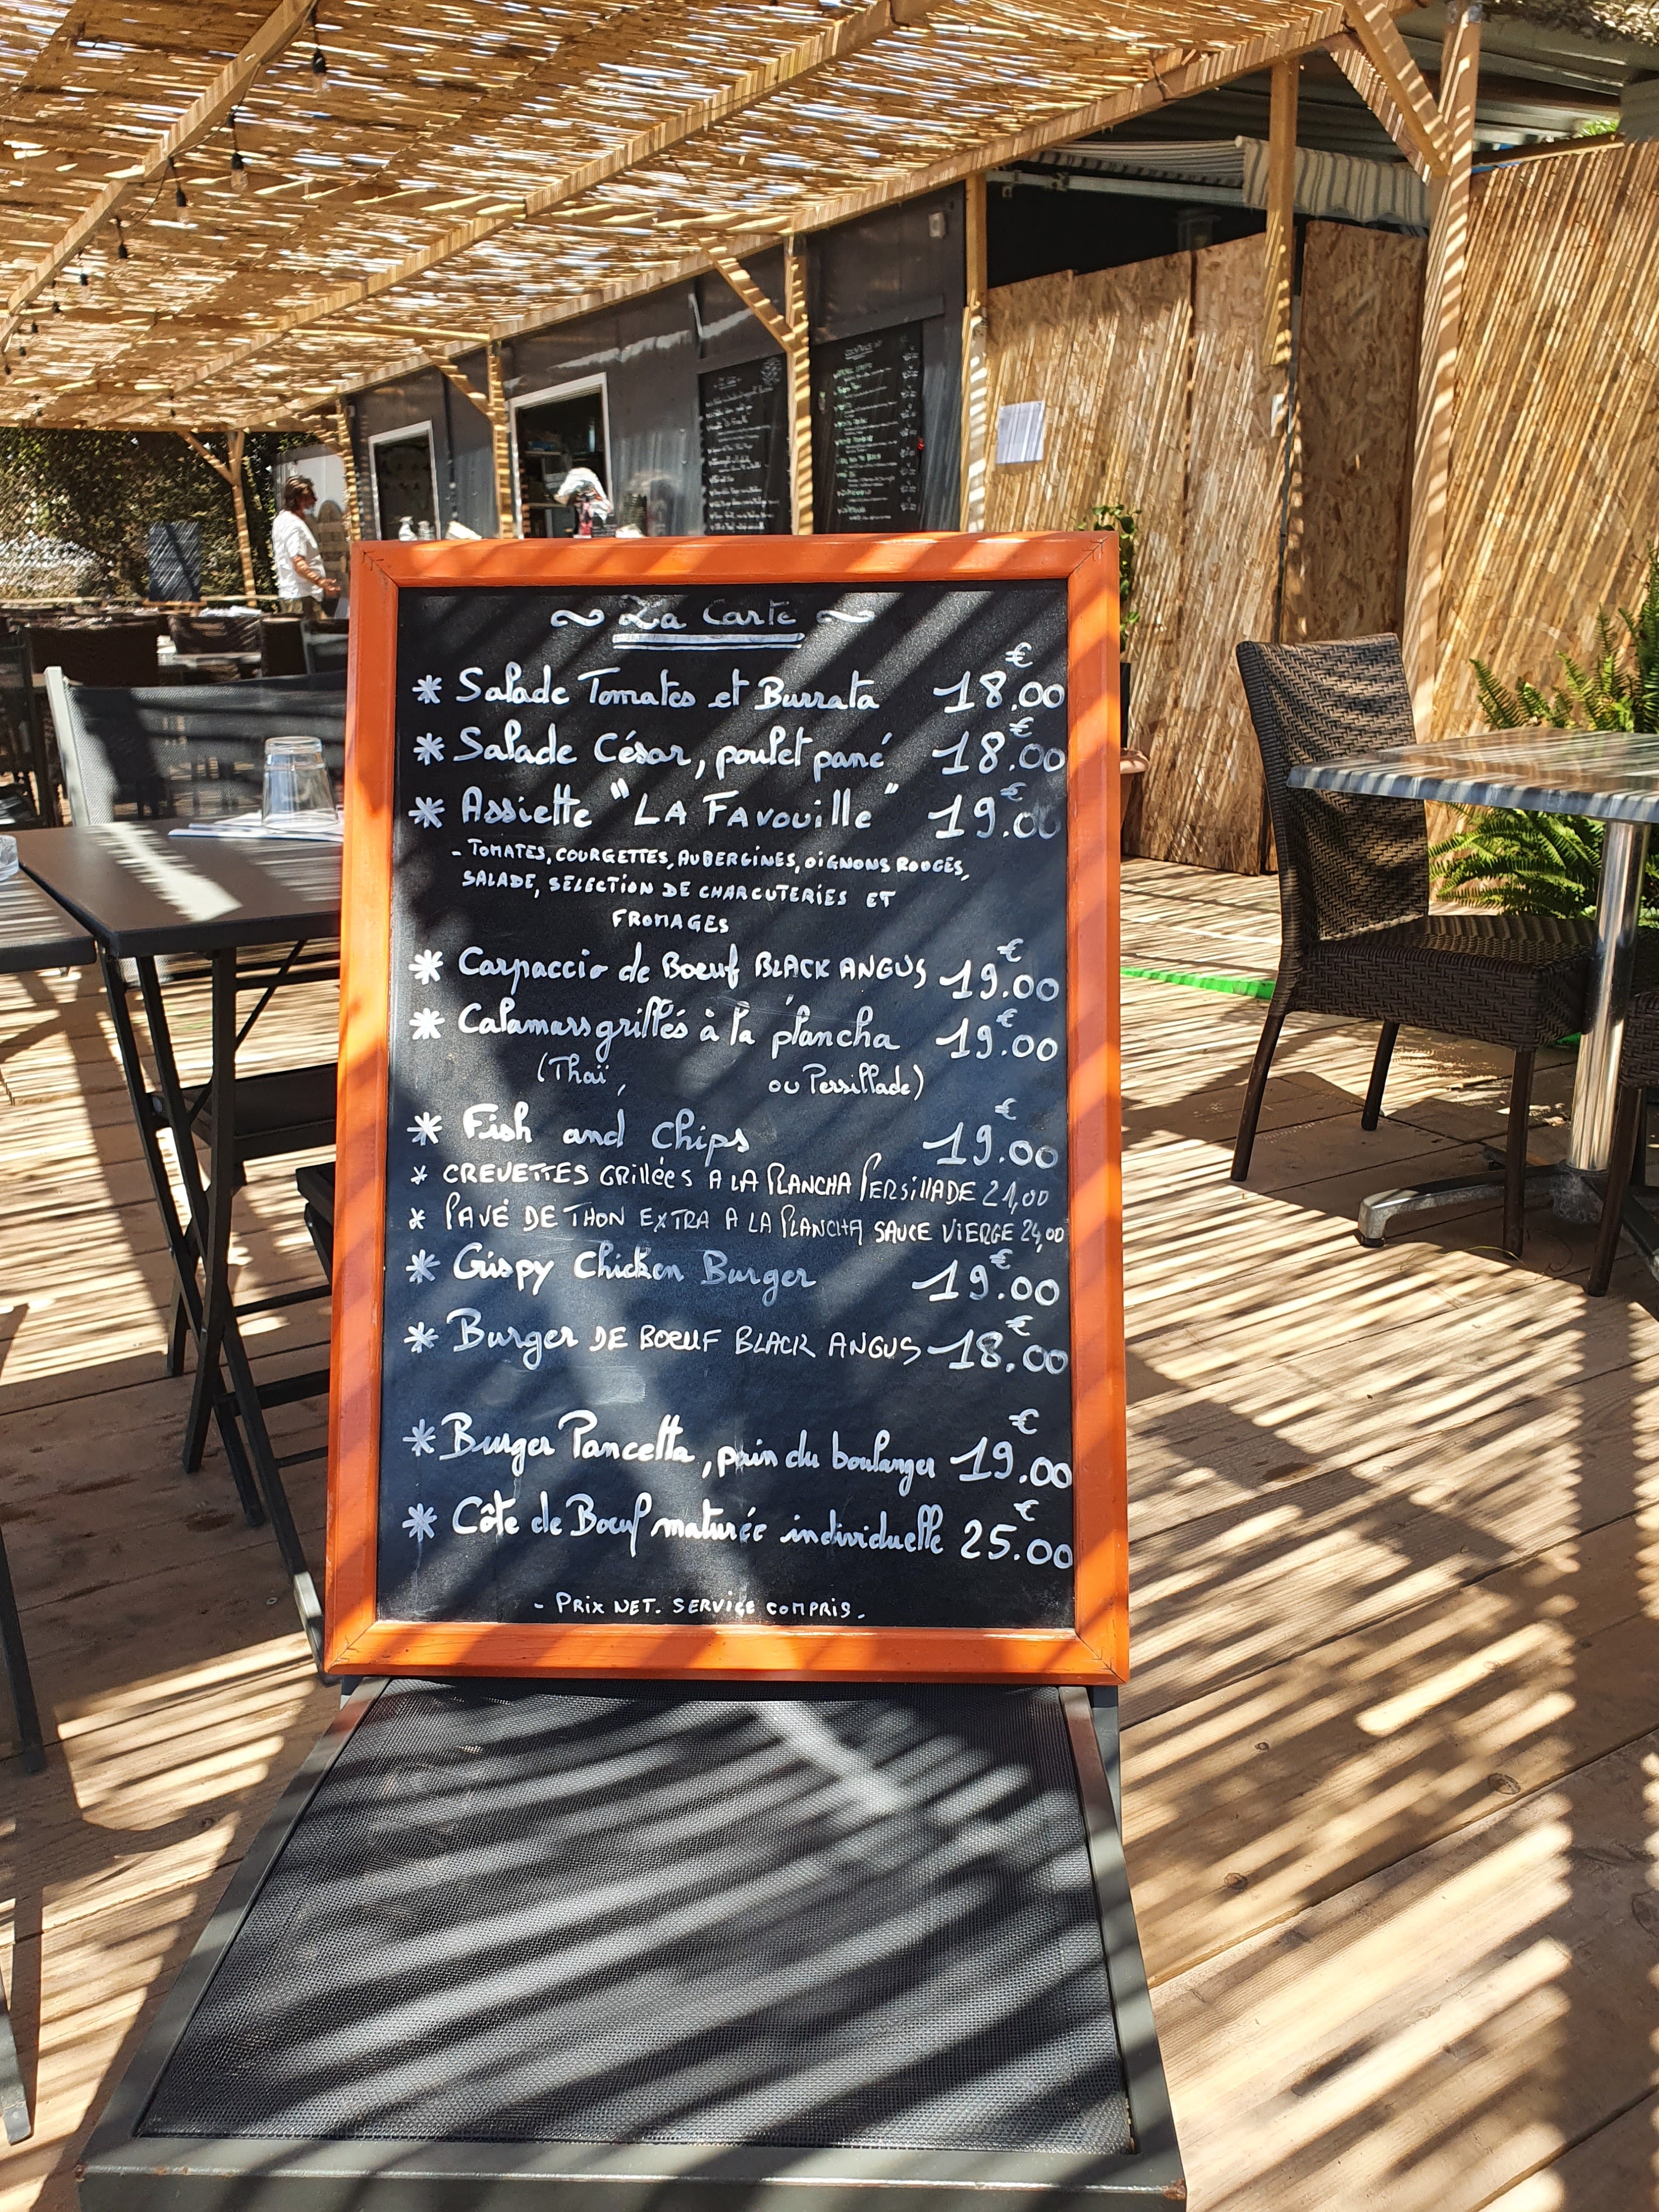 La Carte
€
* Salade Tomates et Burrata 18.00
€
* Salade César, poulet pané 18.00
€
* Assiette "LA FAVOUILLE" 19.00
- TOMATES, COURGETTES, AUBERGINES, OIGNONS ROUGES,
SALADE, SELECTION DE CHARCUTERIES ET
FROMAGES
€
* Carpaccio de Boeuf BLACK ANGUS 19.00
€
* Calamars grillés à la plancha 19.00
(Thaï, ou Persillade)
€
* Fish and chips 19.00
* CREVETTES GRILLÉES A LA PLANCHA PERSILLADE 21,00
* PAVÉ DE THON EXTRA A LA PLANCHA SAUCE VIERGE 24,00
€
* Crispy Chicken Burger 19.00
€
* Burger DE BOEUF BLACK ANGUS 18.00
€
* Burger Pancetta, pain du boulanger 19.00
€
* Côte de Boeuf maturée individuelle 25.00
- PRIX NET. SERVICE COMPRIS.